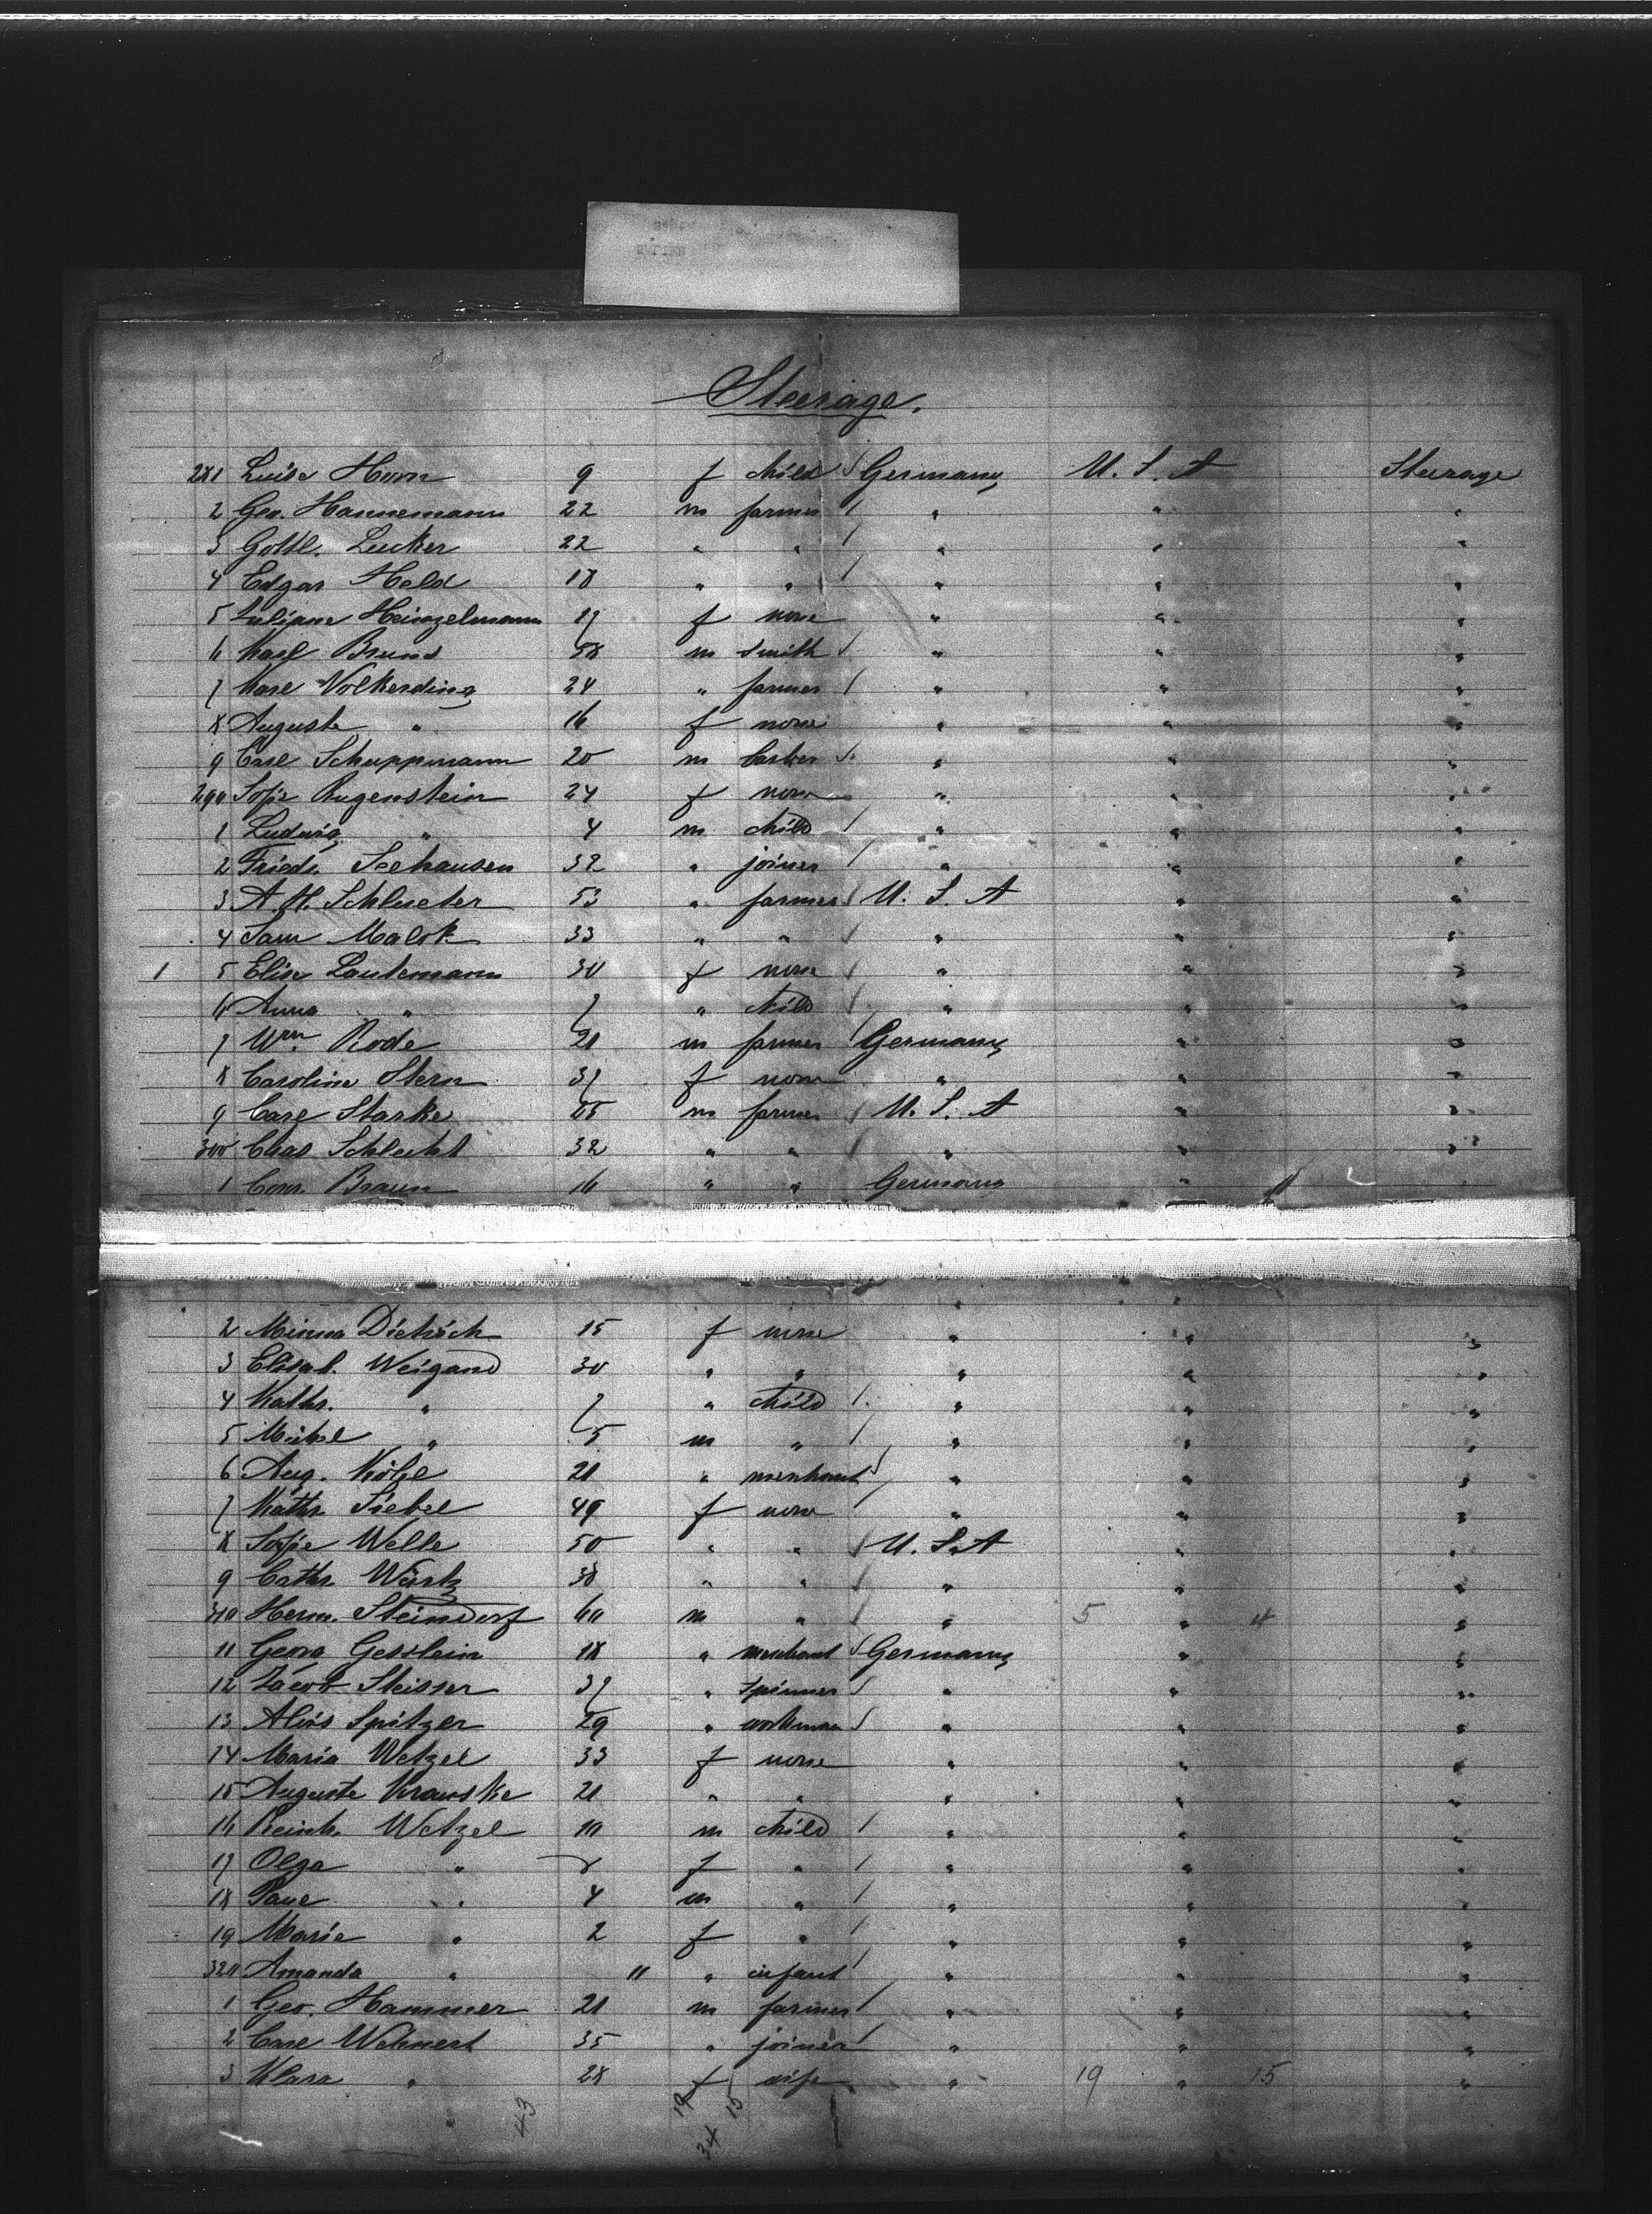 Steerage.
281 Luise Horn 9 f child Germany U. S. A Steerage
2 Geo. Hannemann 22 m farmer " " "
3 Gottl. Lucker 22 " " " " "
4 Edgar Held 18 " " " " "
5 Juliane Heinzelmann 17 f none " " "
6 Karl Bruns 58 m smith " " "
7 Karl Volkerding 24 " farmer " " "
8 Auguste " 16 f none " " "
9 Carl Schuppmann 20 m barber " " "
290 Sofie Rugenstein 24 f none " " "
1 Ludwig " 4 m child " " "
2 Friedr. Seehausen 32 " joiner " " "
3 A. H. Schlueter 53 " farmer U. S. A " "
4 Sam Malok 33 " " " " "
1 5 Elise Lautemann 30 f none " " "
6 Anna " 7 " child " " "
7 Wm. Rode 21 m farmer Germany " "
8 Caroline Stern 37 f none " " "
9 Carl Starke 45 m farmer U. S. A " "
300 Chas Schlecht 32 " " " " "
1 Conr. Braun 16 " " Germany " "
2 Minna Dietrich 15 f none " " "
3 Elisab. Weigand 30 " " " " "
4 Kathr. " 7 " child " " "
5 Michel " 5 m " " " "
6 Aug. Köhl 21 " merchant " " "
7 Kathr. Siebel 49 f none " " "
8 Sofie Welle 50 " " U. S. A " "
9 Cathr. Würtz 38 " " " " "
310 Herm. Steindorf 60 m " " 5 " 4 "
11 Georg Gesslein 18 " merchant Germany " "
12 Jacob Steisser 37 " spinner " " "
13 Alois Spitzer 29 " workman " " "
14 Maria Wetzel 33 f none " " "
15 Auguste Krauske 21 " " " " "
16 Reinh. Wetzel 10 m child " " "
17 Olga " 8 f " " " "
18 Paul " 4 m " " " "
19 Marie " 2 f " " " "
320 Amanda " 11 " infant " " "
1 Geo. Hammer 21 m farmer " " "
2 Carl Wehnert 35 " joiner " " "
3 Klara " 28 f wife " 19 " 15 "
43 19 15
34